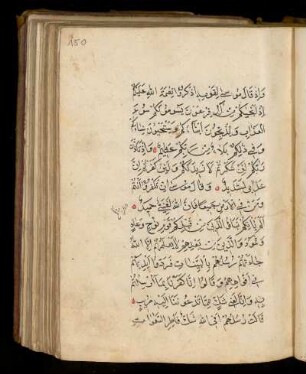 150
وَاِذْ قَالَ مُوسٰى لِقَوْمِهِ اذْكُرُوا نِعْمَةَ اللّٰهِ عَلَيْكُمْ
اِذْ اَنْجٰيكُمْ مِنْ اٰلِ فِرْعَوْنَ يَسُومُونَكُمْ سُوءَ
الْعَذَابِ وَيُذَبِّحُونَ اَبْنَاءَكُمْ وَيَسْتَحْيُونَ نِسَاءَكُمْ
وَفِي ذٰلِكُمْ بَلَاءٌ مِنْ رَبِّكُمْ عَظِيمٌ وَاِذْ تَاَذَّنَ
رَبُّكُمْ لَئِنْ شَكَرْتُمْ لَاَزِيدَنَّكُمْ وَلَئِنْ كَفَرْتُمْ اِنَّ
عَذَابِي لَشَدِيدٌ وَقَالَ مُوسٰى اِنْ تَكْفُرُوا اَنْتُمْ
وَمَنْ فِي الْاَرْضِ جَمِيعًا فَاِنَّ اللّٰهَ لَغَنِيٌّ حَمِيدٌ
اَلَمْ يَاْتِكُمْ نَبَؤُا الَّذِينَ مِنْ قَبْلِكُمْ قَوْمِ نُوحٍ وَعَادٍ
وَثَمُودَ وَالَّذِينَ مِنْ بَعْدِهِمْ لَا يَعْلَمُهُمْ اِلَّا اللّٰهُ
جَاءَتْهُمْ رُسُلُهُمْ بِالْبَيِّنَاتِ فَرَدُّوا اَيْدِيَهُمْ
فِي اَفْوَاهِهِمْ وَقَالُوا اِنَّا كَفَرْنَا بِمَا اُرْسِلْتُمْ
بِهِ وَاِنَّا لَفِي شَكٍّ مِمَّا تَدْعُونَنَا اِلَيْهِ مُرِيبٍ
قَالَتْ رُسُلُهُمْ اَفِي اللّٰهِ شَكٌّ فَاطِرِ السَّمٰوَاتِ